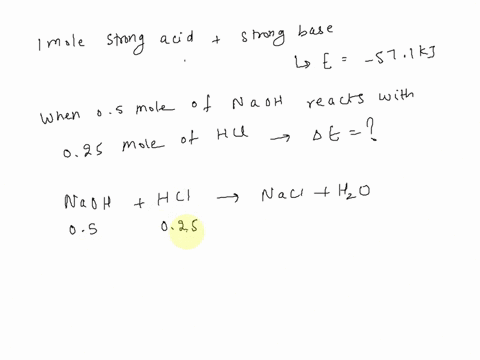 1 mole strong acid + strong base
↳ E = -57.1 kJ
When 0.5 mole of NaOH reacts with
0.25 mole of HCl → ΔE = ?
NaOH + HCl → NaCl + H2O
0.5 0.25